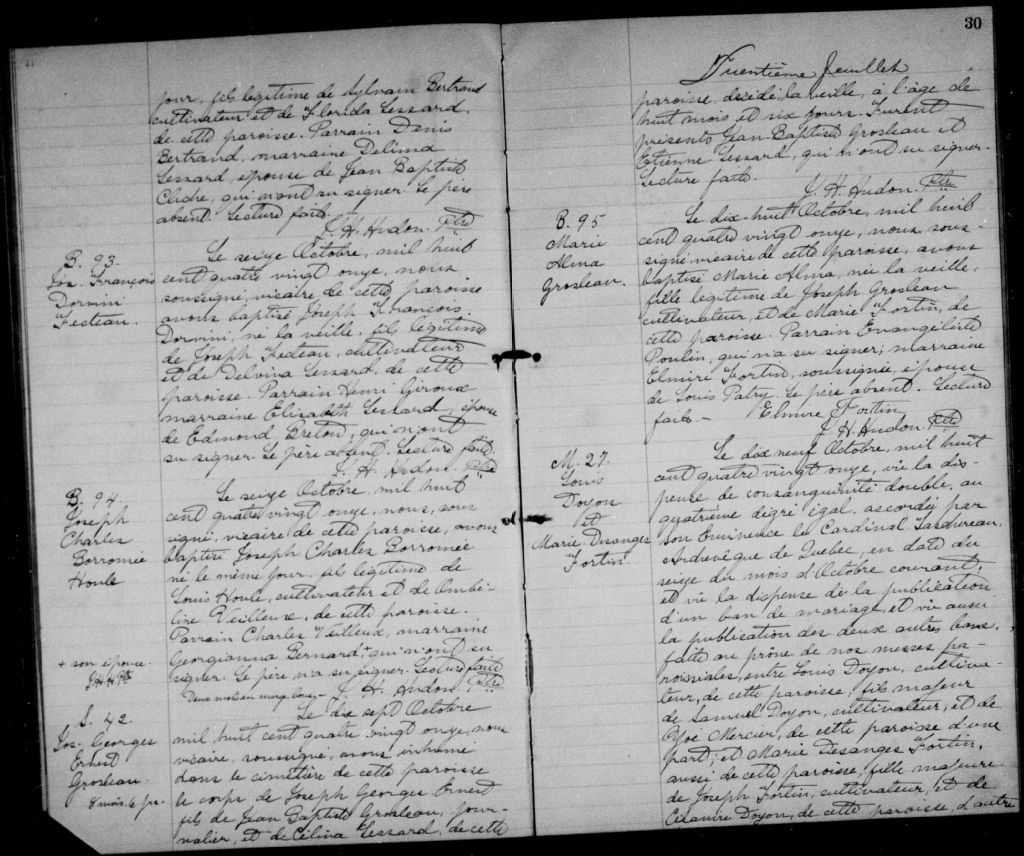 jour, fils légitime de Sylvain Bertrand
cultivateur et de Florida Lessard,
de cette paroisse. Parrain Denis
Bertrand, marraine Délima
Lessard, épouse de Jean Baptiste
Cliche, qui n'ont su signer. Le père
absent. Lecture faite.
J. H. Hudon. Ptre
B. 93.
Jos. François
Dorvini
Fecteau.
Le seize Octobre, mil huit
cent quatre vingt onze, nous
soussigné, vicaire de cette paroisse
avons baptisé Joseph François
Dorvini, né la veille, fils légitime
de Joseph Fecteau, cultivateur
et de Delvina Lessard, de cette
paroisse. Parrain Henri Giroux
marraine Elizabeth Lessard, épouse
de Edmond Breton, qui n'ont
su signer. Le père absent. Lecture faite.
J. H. Hudon. Ptre
B. 94.
Joseph
Charles
Borromée
Houle
Le seize Octobre, mil huit
cent quatre vingt onze, nous, sous
signé, vicaire de cette paroisse, avons
baptisé Joseph Charles Borromée
né le même jour, fils légitime de
Louis Houle, cultivateur et de Ombé-
line Veilleux, de cette paroisse.
Parrain Charles Veilleux, marraine
Georgianna Bernard,+ qui n'ont su
signer. Le père n'a su signer. Lecture faite
+ son épouse.
J. H. H. Ptre
Deux mots en marge bons - J. H. Hudon. Ptre
S. 42.
Jos. Georges
Ernest
Grosleau.
8 mois, 6 jrs.
Le dix sept Octobre
mil huit cent quatre vingt onze, nous
vicaire, soussigné, avons inhumé
dans le cimetière de cette paroisse
le corps de Joseph Georges Ernest
fils de Jean Baptiste Grosleau, jour-
nalier, et de Célina Lessard, de cette
30
Trentième feuillet
paroisse, décédé la veille, à l'âge de
huit mois et six jours. Furent
présents Jean Baptiste Grosleau et
Etienne Lessard, qui n'ont su signer.
Lecture faite.
J. H. Hudon. Ptre
B. 95
Marie
Alma
Grosleau.
Le dix-huit Octobre, mil huit
cent quatre vingt onze, nous, sous-
signé, vicaire de cette paroisse, avons
baptisé Marie Alma, née la veille,
fille légitime de Joseph Grosleau
cultivateur, et de Marie Fortin, de
cette paroisse. Parrain Evangéliste
Poulin, qui n'a su signer; marraine
Elmire Fortin, soussignée, épouse
de Louis Patry. Le père absent. Lecture
faite - Elmire Fortin
J. H. Hudon. Ptre
M. 27.
Louis
Doyon
et
Marie Desanges
Fortin.
Le dix neuf Octobre, mil huit
cent quatre vingt onze, vû la dis-
pense de consanguinité double, au
quatrième dégré égal, accordée par
Son Eminence le Cardinal Taschereau,
Archevêque de Québec, en date du
seize du mois d'Octobre courant,
et vû la dispense de la publication
d'un ban de mariage, et vû aussi
la publication des deux autres bans,
faite au prône de nos messes pa-
roissiales, entre Louis Doyon, cultiva-
teur, de cette paroisse, fils majeur
de Samuel Doyon, cultivateur, et de
Zoé Mercier, de cette paroisse d'une
part; et Marie Desanges Fortin,
aussi de cette paroisse, fille majeure
de Joseph Fortin, cultivateur, et de
Césaire Doyon, de cette paroisse, d'autre